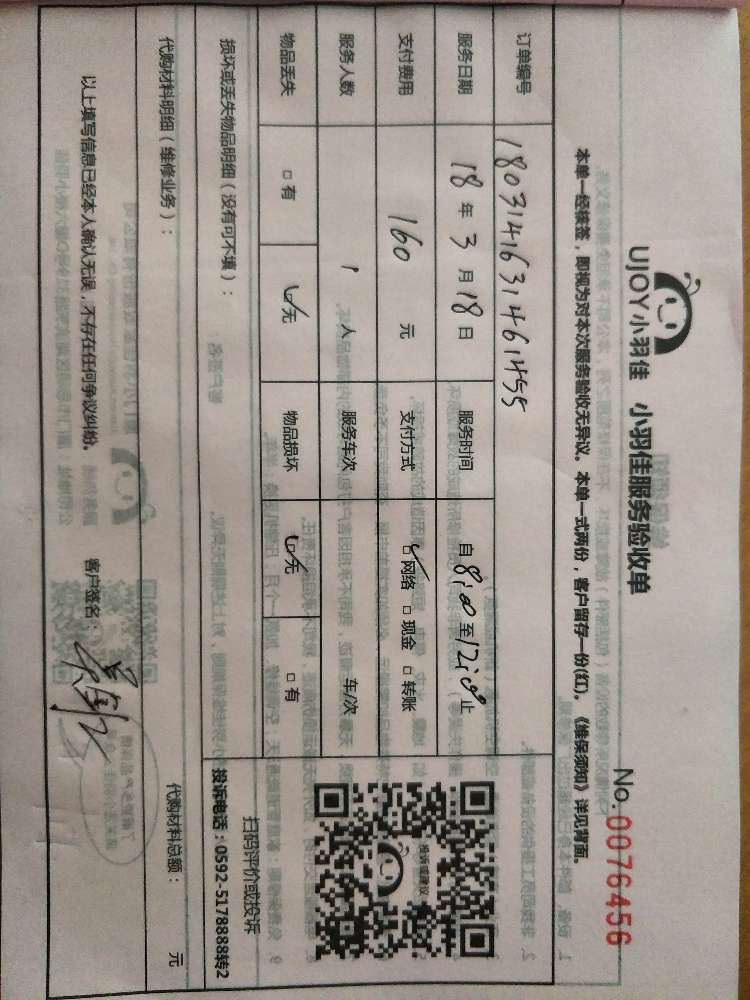 UJOY小羽佳 小羽佳服务验收单
No. 0076456
本单一经接签，即视为对本次服务验收无异议。本单一式两份，客户留存一份(红)。《维保须知》详见背面。
订单编号 1803141631461455
服务日期 18年3月18日 服务时间 自8:00至12:00止
支付费用 160元 支付方式 ☑网络 □现金 □转账
服务人数 1人 服务车次 车/次
物品丢失 □有 ☑无 物品损坏 ☑无 □有
投诉或建议
扫码评价或投诉
投诉电话：0592-5178888转2
损坏或丢失物品明细（没有可不填）：
代购材料明细（维修业务）： 代购材料总额： 元
以上填写信息已经本人确认无误，不存在任何争议纠纷。 客户签名：